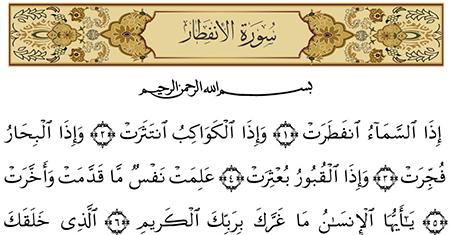 سُورَةُ الانفِطَارِ
بسم الله الرحمن الرحيم
إِذَا السَّمَاءُ انفَطَرَتْ ﴿١﴾ وَإِذَا الْكَوَاكِبُ انتَثَرَتْ ﴿٢﴾ وَإِذَا الْبِحَارُ
فُجِّرَتْ ﴿٣﴾ وَإِذَا الْقُبُورُ بُعْثِرَتْ ﴿٤﴾ عَلِمَتْ نَفْسٌ مَّا قَدَّمَتْ وَأَخَّرَتْ
﴿٥﴾ يَٰأَيُّهَا الْإِنسَٰنُ مَا غَرَّكَ بِرَبِّكَ الْكَرِيمِ ﴿٦﴾ الَّذِي خَلَقَكَ